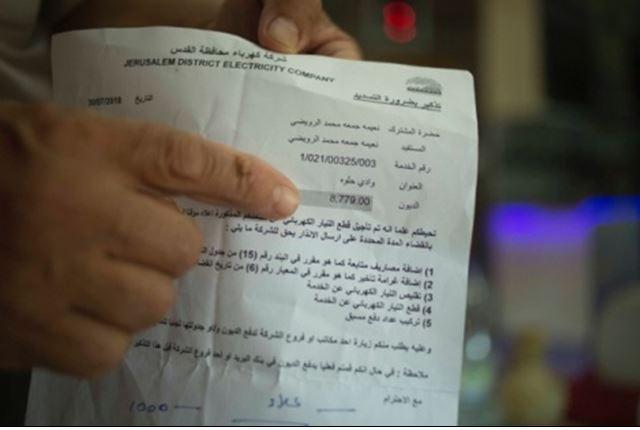 شركة كهرباء محافظة القدس
JERUSALEM DISTRICT ELECTRICITY COMPANY
تذكير بضرورة التسديد
التاريخ 30/07/2018
حضرة المشترك نعيمه جمعه محمد الرويضي
المستفيد نعيمه جمعه محمد الرويضي
رقم الخدمة 1/021/00325/003
العنوان وادي حلوه
الديون 8,779.00
نحيطكم علما انه تم تأجيل قطع التيار الكهربائي عن المذكورة اعلاه
بانقضاء المدة المحددة على ارسال الانذار يحق للشركة ما يلي :
1) اضافة مصاريف متابعة كما هو مقرر في البند رقم (15) من جدول
2) اضافة غرامة تأخير كما هو مقرر في المعيار رقم (6) من تاريخ
3) تقليص التيار الكهربائي عن الخدمة
4) قطع التيار الكهربائي عن الخدمة
5) تركيب عداد دفع مسبق
وعليه يطلب منكم زيارة احد مكاتب او فروع الشركة لدفع الديون و/او جدولتها
ملاحظة : في حال انكم قمتم فعليا بدفع الديون في بنك البريد او احد فروع الشركة في هذا التذكير
مع الاحترام
1000